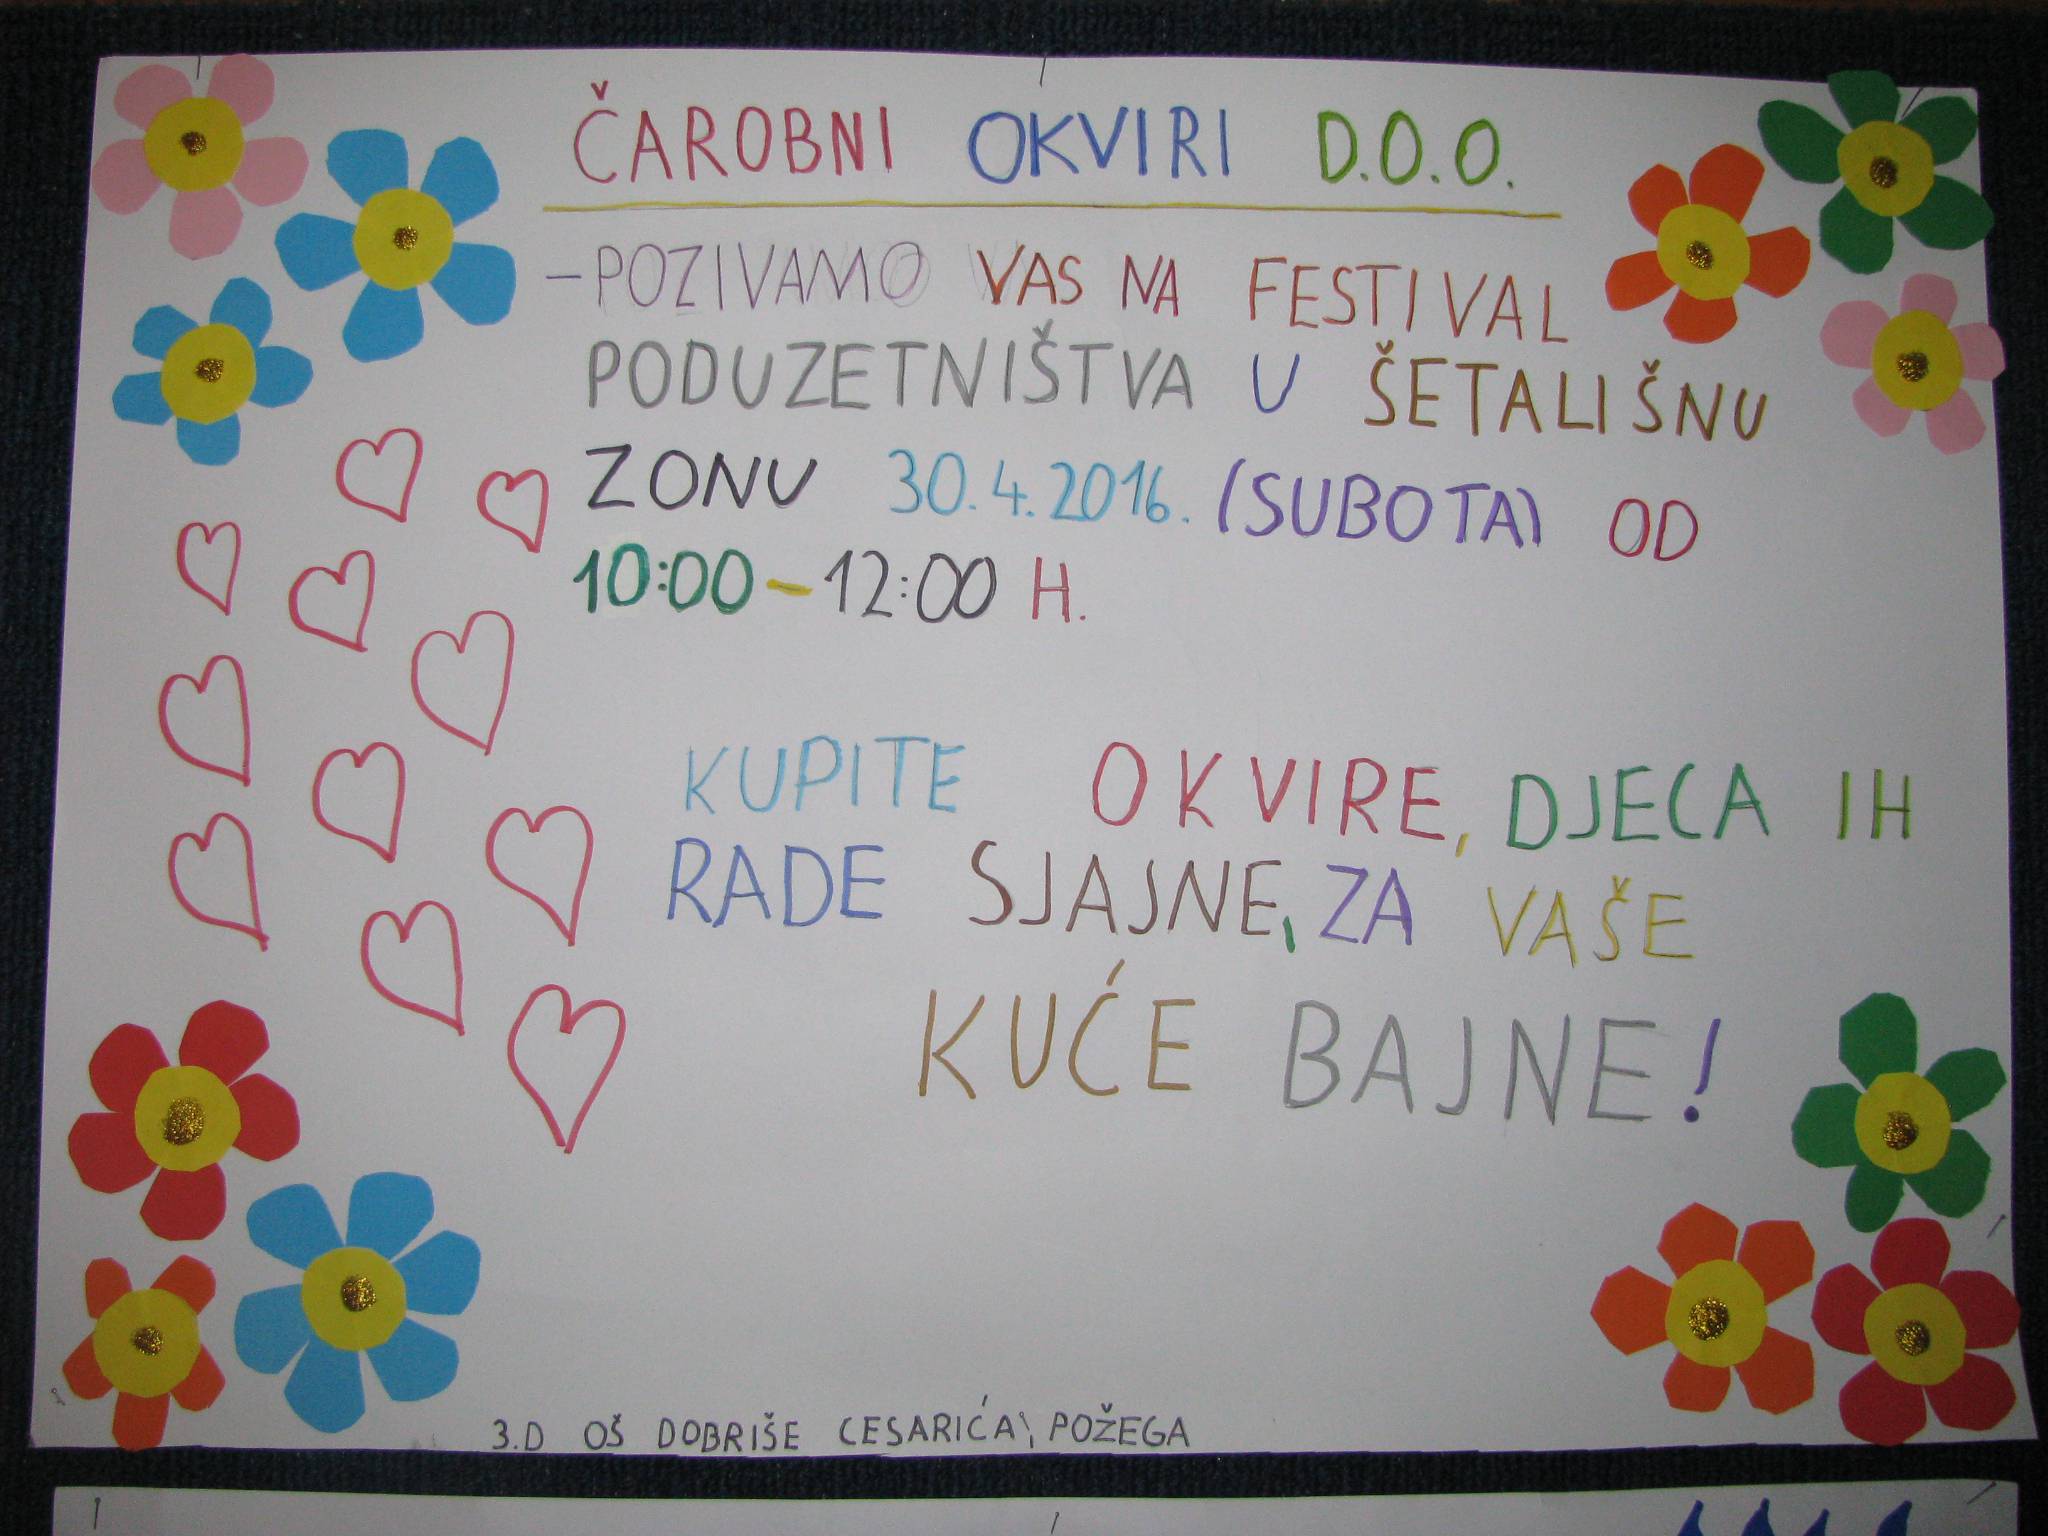 ČAROBNI OKVIRI D.O.O.
-POZIVAMO VAS NA FESTIVAL
PODUZETNIŠTVA U ŠETALIŠNU
ZONU 30.4.2016. (SUBOTA) OD
10:00-12:00 H.
KUPITE OKVIRE, DJECA IH
RADE SJAJNE, ZA VAŠE
KUĆE BAJNE!
3.D OŠ DOBRIŠE CESARIĆA, POŽEGA